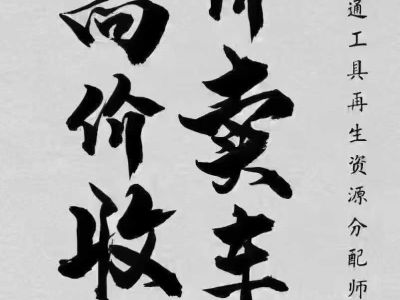 通工具再生资源分配师
卖车
高价收